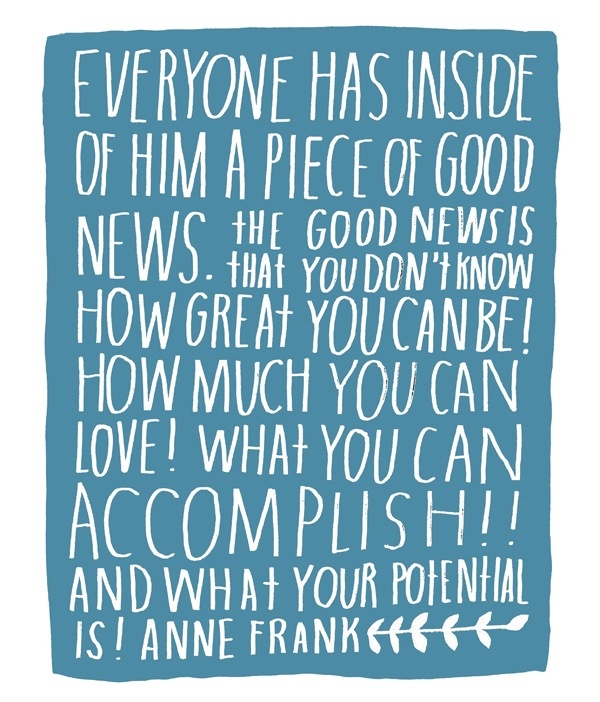 EVERYONE HAS INSIDE
OF HIM A PIECE OF GOOD
NEWS. tHE GOOD NEWS IS
tHAt YOU DON't KNOW
HOW GREAt YOU CAN BE!
HOW MUCH YOU CAN
LOVE! WHAt YOU CAN
ACCOMPLISH!!
AND WHAt YOUR POtENtIAL
IS! ANNE FRANK